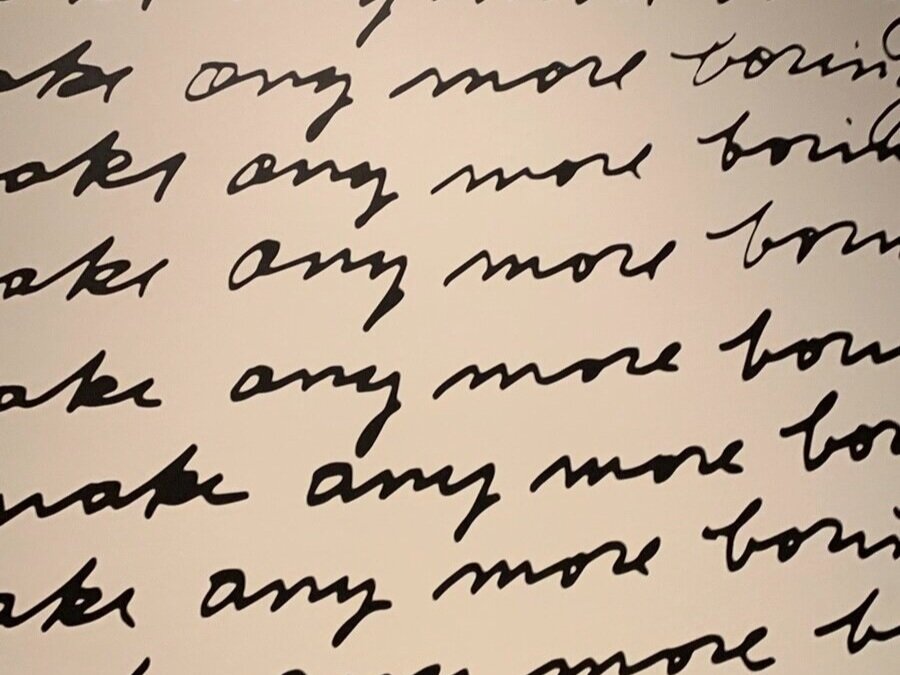 ake any more borin
ake any more borin
ake any more born
ake any more bori
make any more bor
ake any more borin
any more b